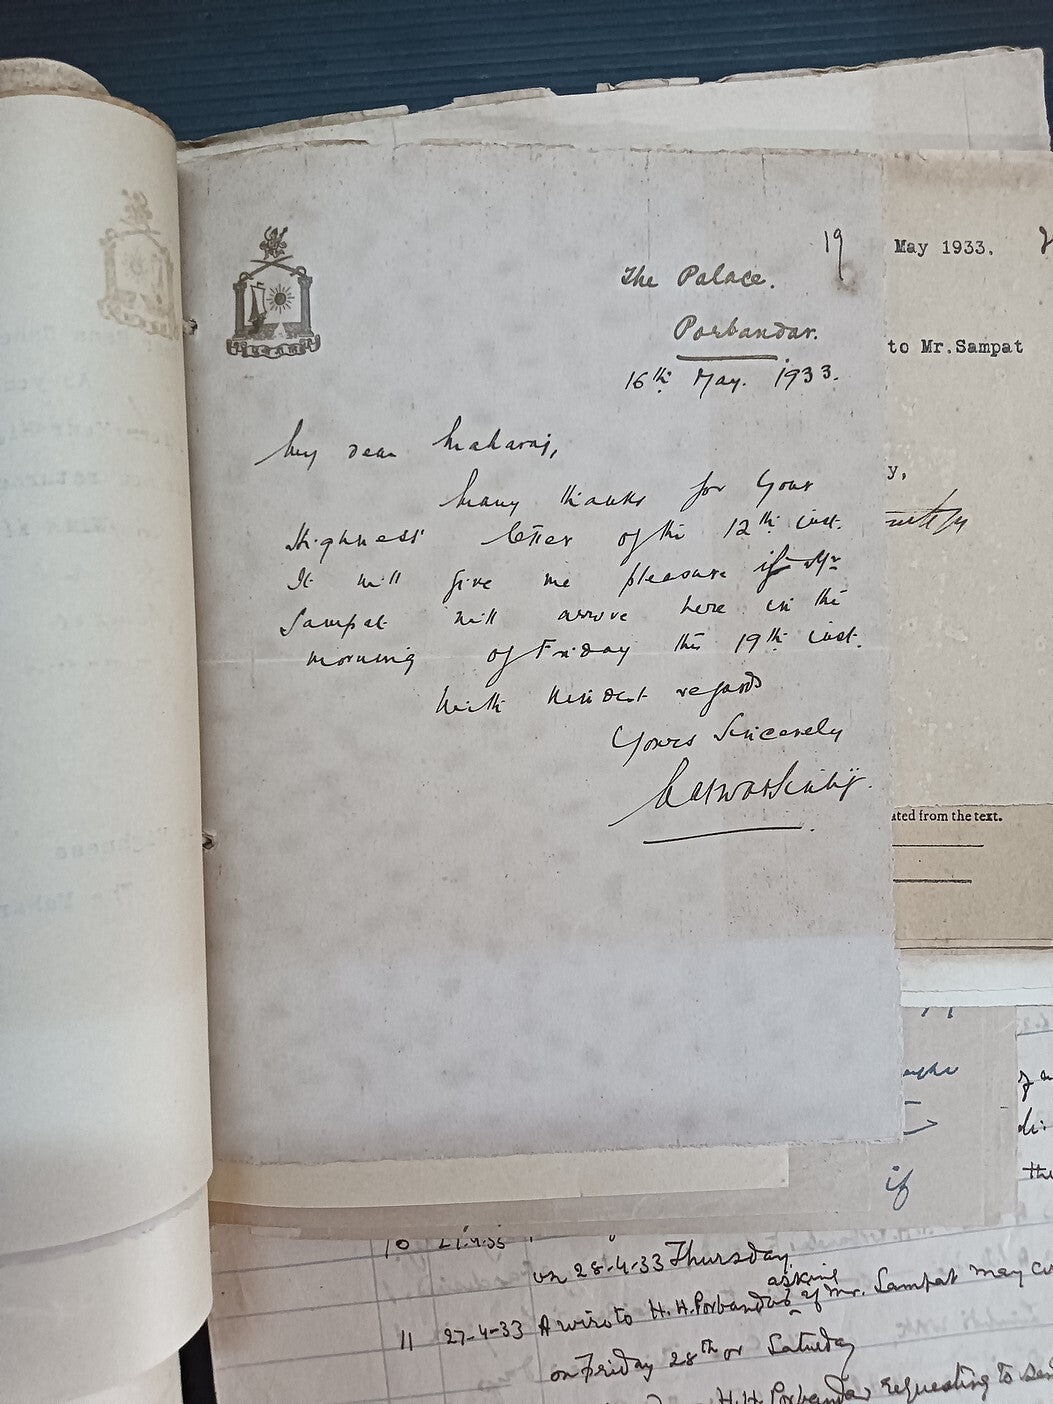 19
The Palace.
Porbandar.
16th May. 1933.
My dear Maharaj,
Many thanks for Your
Highness' letter of the 12th inst.
It will give me pleasure if Mr
Sampat will arrive here in the
morning of Friday the 19th inst.
With kindest regards
Yours Sincerely
Natwarsinhji.
May 1933.
to Mr.Sampat
y,
ated from the text.
if
the
10
on 28-4-33 Thursday.
11 27-4-33 A wire to H.H. Porbandar asking if Mr. Sampat may
on Friday 28th or Saturday
H.H. Porbandar requesting to send